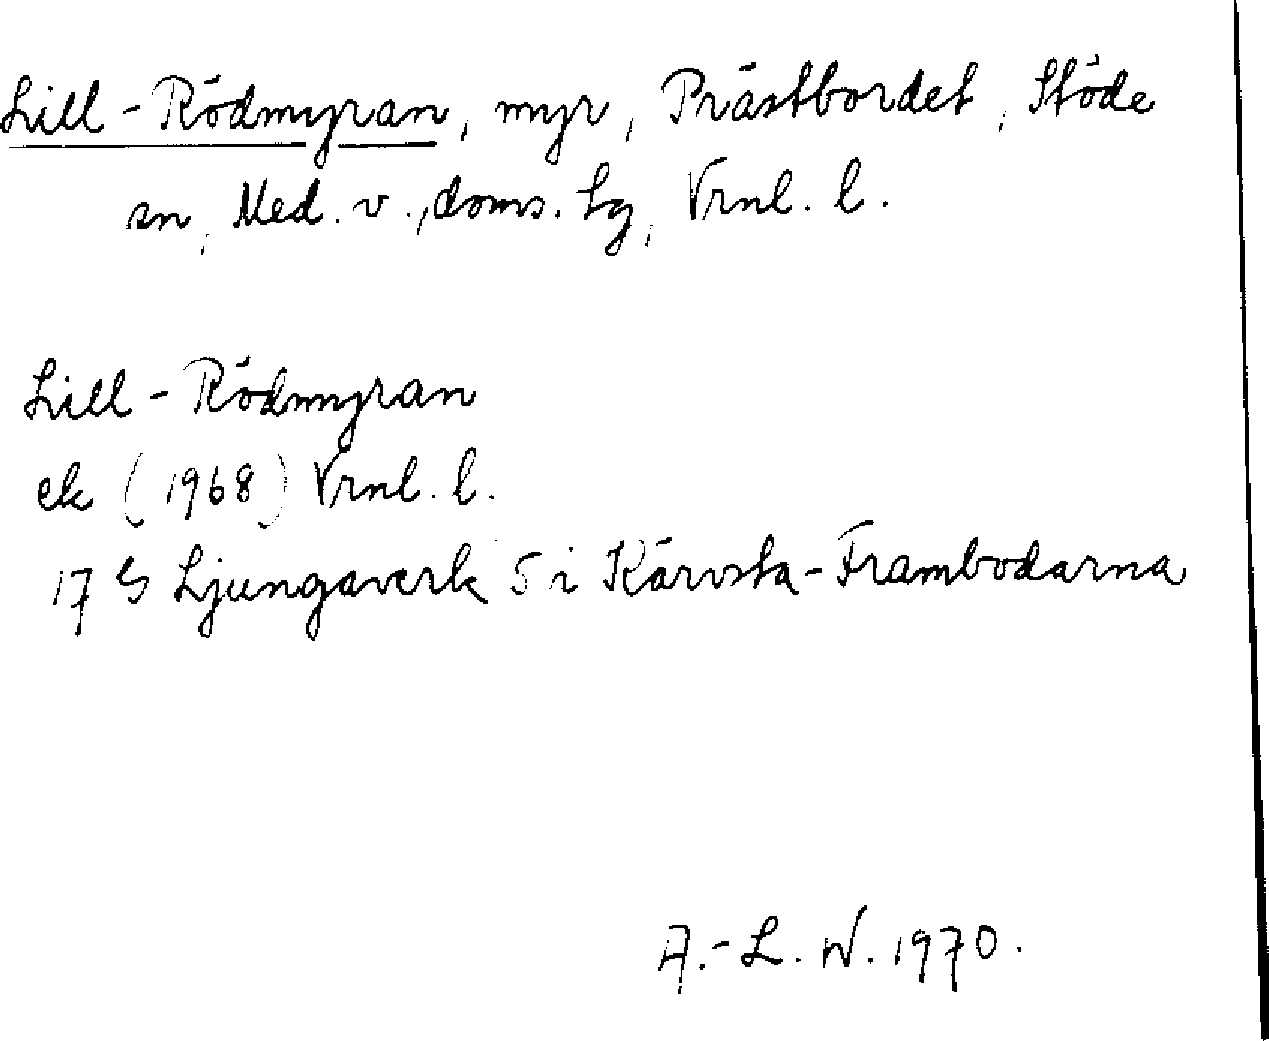 Lill-Rödmyran, myr, Prästbordet, Stöde
sn, Med. v., doms. Lg, Vrnl. l.
Lill-Rödmyran
ek (1968) Vrnl. l.
17 G Ljungaverk 5 i Kärvsta-Frambodarna
A.-L. W. 1970.